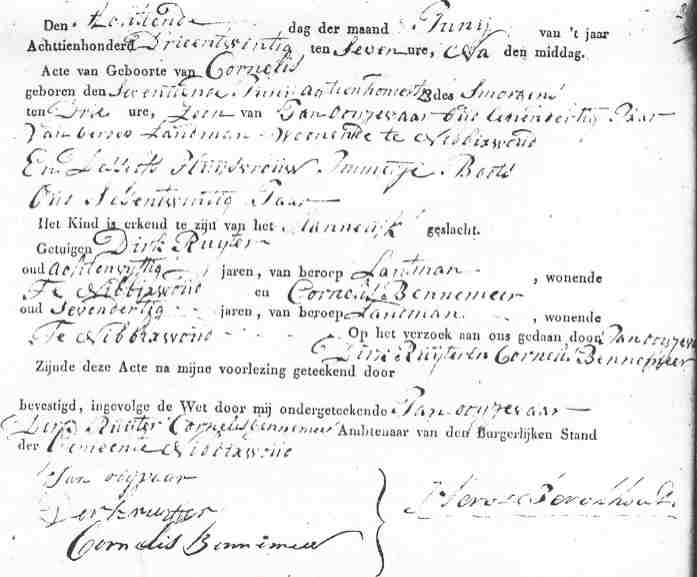 Den Achttende dag der maand Juny van 't jaar
Achttienhonderd Drieentwintig ten Seven ure, Na den middag.
Acte van Geboorte van Cornelis
geboren den Seventiende Juny des Smorgens
ten Drie ure, Zoon van Jan ooyevaar Oud Jaar
Van beroep Landman Woonende te Nibbixwoud
En Huysvrouw Immetje Boots
Oud Jaar
Het Kind is erkend te zijn van het Mannelyk geslacht.
Getuigen Dirk Ruyter
oud Achtenvyftig jaren, van beroep Lantman , wonende
Te Nibbixwoud en Cornelis Bennemeer
oud Sevendertig jaren, van beroep Landman , wonende
Te Nibbixwoud Op het verzoek aan ons gedaan door Jan ooyeva
Dirk Ruyter en Cornelis Bennemeer
Zijnde deze Acte na mijne voorlezing geteekend door
bevestigd, ingevolge de Wet door mij ondergeteekende Jan ooyevaar
Dirk Ruyter Cornelis Bennemeer Ambtenaar van den Burgerlijken Stand
der Gemeente Nibbixwoud
Jan oyvaar
Derk ruijter
Cornelis Bennemeer